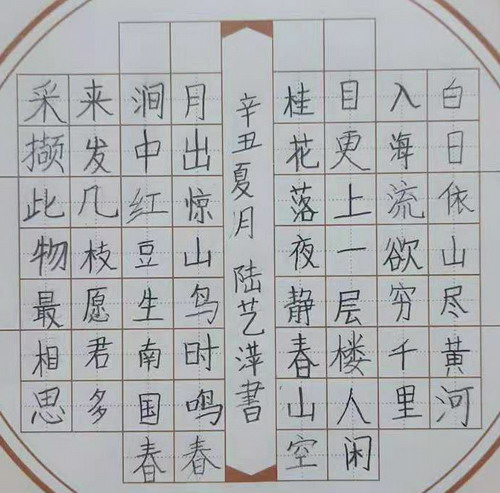 白日依山尽黄河
入海流欲穷千里
目更上一层楼人闲
桂花落夜静春山空
辛丑夏月 陆艺萍書
月出惊山鸟时鸣春
涧中红豆生南国春
来发几枝愿君多
采撷此物最相思